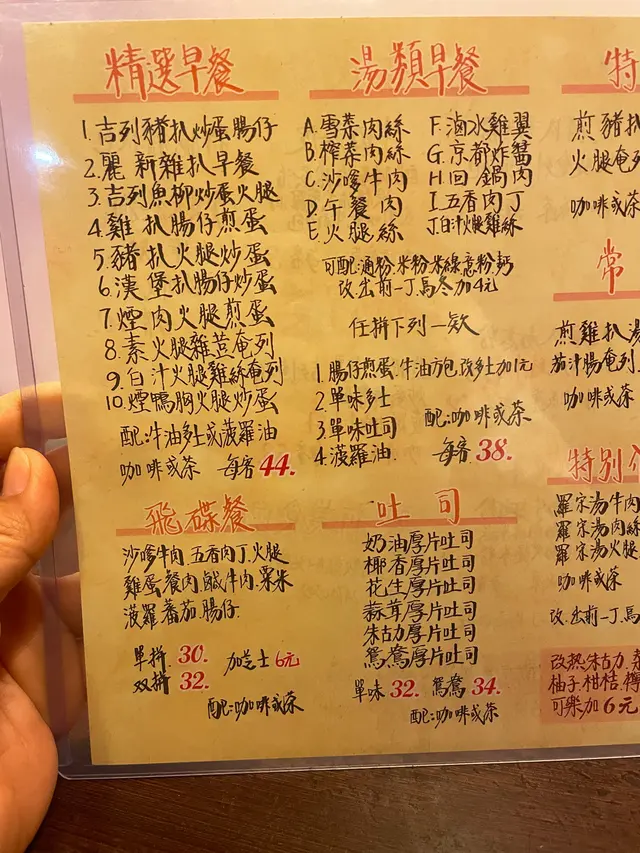 精選早餐
1.吉列豬扒炒蛋腸仔
2.麗新雜扒早餐
3.吉列魚柳炒蛋火腿
4.雞扒腸仔煎蛋
5.豬扒火腿炒蛋
6.漢堡扒腸仔炒蛋
7.煙肉火腿煎蛋
8.素火腿雜菇奄列
9.白汁火腿雞絲奄列
10.煙鴨胸火腿炒蛋
配:牛油多士或菠羅油
咖啡或茶 每客 44.
湯類早餐
A.雪菜肉絲 F.滷水雞翼
B.榨菜肉絲 G.京都炸醬
C.沙嗲牛肉 H.回鍋肉
D.午餐肉 I.五香肉丁
E.火腿絲 J.白汁火腿雞絲
可配:通粉.米粉.米線.意粉.鈣
改.出前一丁.烏冬加4元
任拼下列一款
1.腸仔煎蛋.牛油方包.改多士加1元
2.單味多士
3.單味吐司 配:咖啡或茶
4.菠羅油. 每客. 38.
飛碟餐
沙嗲牛肉.五香肉丁.火腿
雞蛋餐肉.鹹牛肉.粟米
菠羅蕃茄.腸仔
單拼 30. 加芝士6元
双拼 32.
配:咖啡或茶
吐司
奶油厚片吐司
椰香厚片吐司
花生厚片吐司
蒜茸厚片吐司
朱古力厚片吐司
鴛鴦厚片吐司
單味 32. 鴛鴦 34.
配:咖啡或茶
特
煎豬扒
火腿奄列
咖啡或茶
常
煎雞扒湯
茄汁腸奄列
咖啡或茶
特別
羅宋湯牛肉
羅宋湯肉絲
羅宋湯火腿
咖啡或茶
改.出前一丁.烏
改熱.朱古力.
柚子.柑桔.檸
可樂加6元